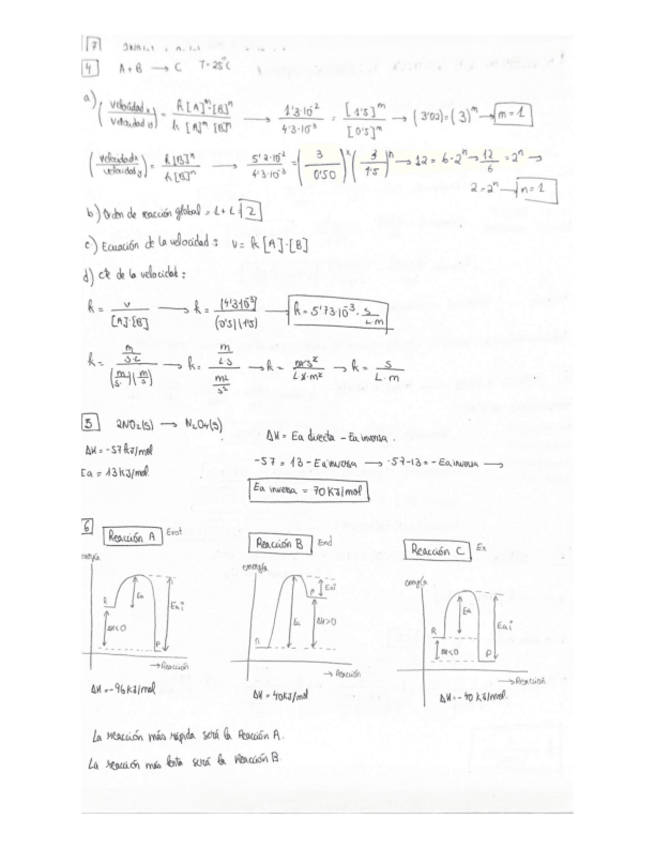 7
4 A + B → C T = 25°C
a) (velocidad x / velocidad y) = k[A]^m·[B]^n / k[A]^m·[B]^n → 1'3·10^-2 / 4'3·10^-3 = [1'5]^m / [0'5]^m → (3'02) = (3)^m → m = 1
(velocidad x / velocidad y) = k[B]^n / k[B]^n → 5'2·10^-2 / 4'3·10^-3 = (3 / 0'50)^x (3 / 1'5)^n → 12 = 6·2^n → 12/6 = 2^n →
2 = 2^n → n = 1
b) Orden de reacción global = 1 + 1 2
c) Ecuación de la velocidad: v = k[A]·[B]
d) cte de la velocidad:
k = v / [A]·[B] → k = [4'3·10^-3] / (0'5)(1'5) → k = 5'73·10^-3 · s / L·m
k = m/s·L / (m/s)(m/s) → k = m/L·s / m²/s² → k = m·s² / L·s·m² → k = s / L·m
5 2NO₂(s) → N₂O₄(s)
ΔH = -57 kJ/mol
Ea = 13 KJ/mol
ΔH = Ea directa - Ea inversa.
-57 = 13 - Ea inversa → -57-13 = -Ea inversa →
Ea inversa = 70 KJ/mol
6 Reacción A Exot Reacción B End Reacción C Ex
energía energía energía
R Ea Eai ΔH<0 P
R Ea P Eai ΔH>0
R Ea Eai ΔH<0 P
→ Reacción → Reacción → Reacción
ΔH = -96 kJ/mol ΔH = 40 KJ/mol ΔH = -40 KJ/mol.
La reacción más rápida será la Reacción A.
La reacción más lenta será la Reacción B.